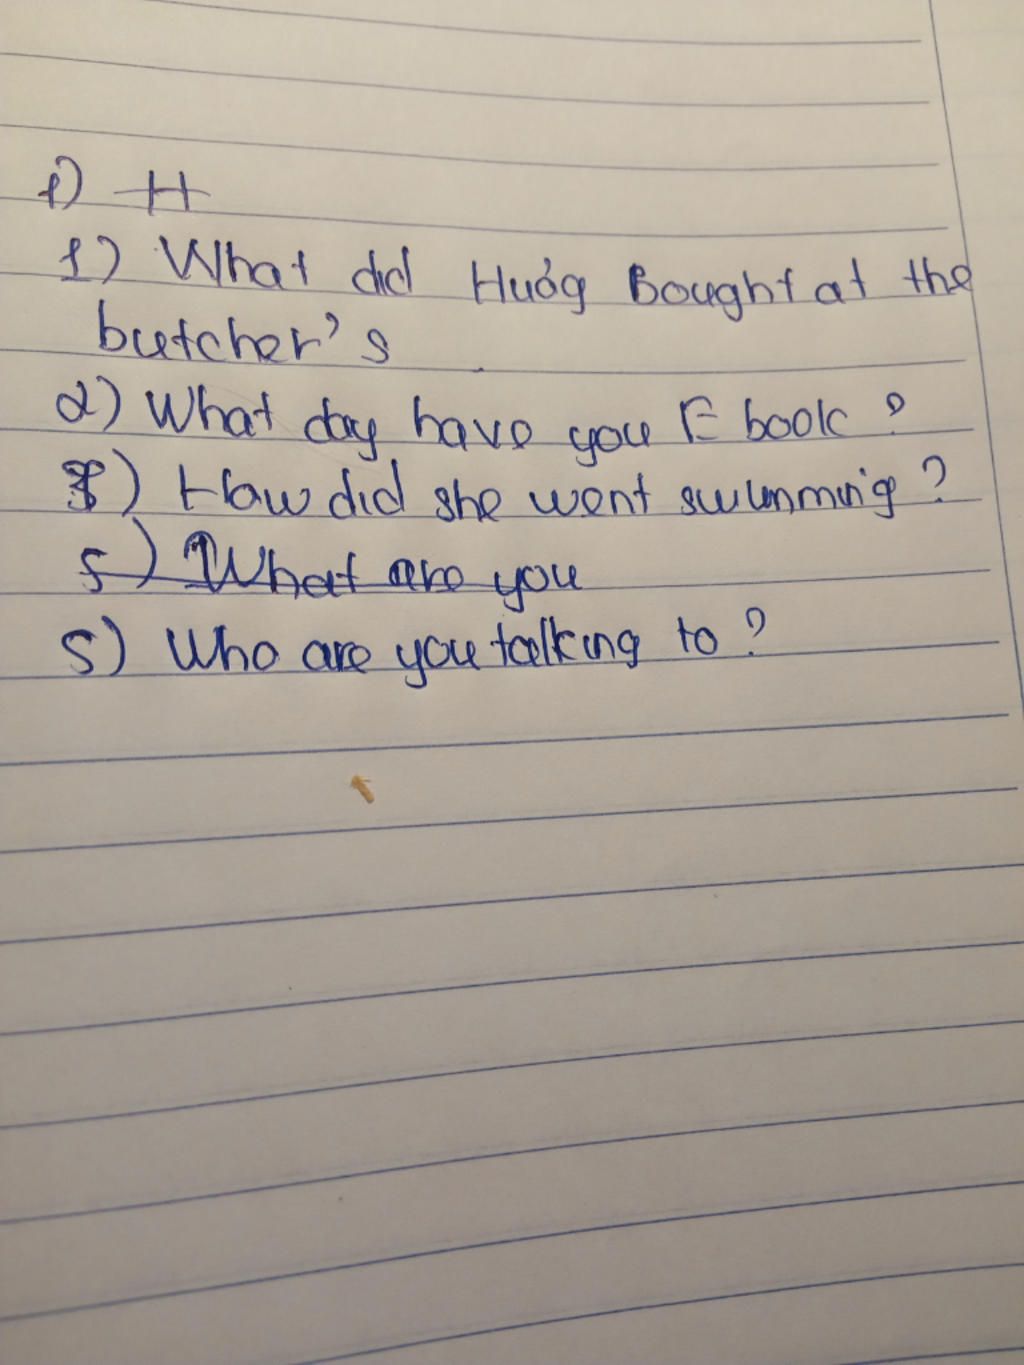 1) H
1) What did Huóg Bought at the
butcher's
2) What day have you E book ?
3) How did she went swimming ?
5) What are you
5) Who are you talking to ?